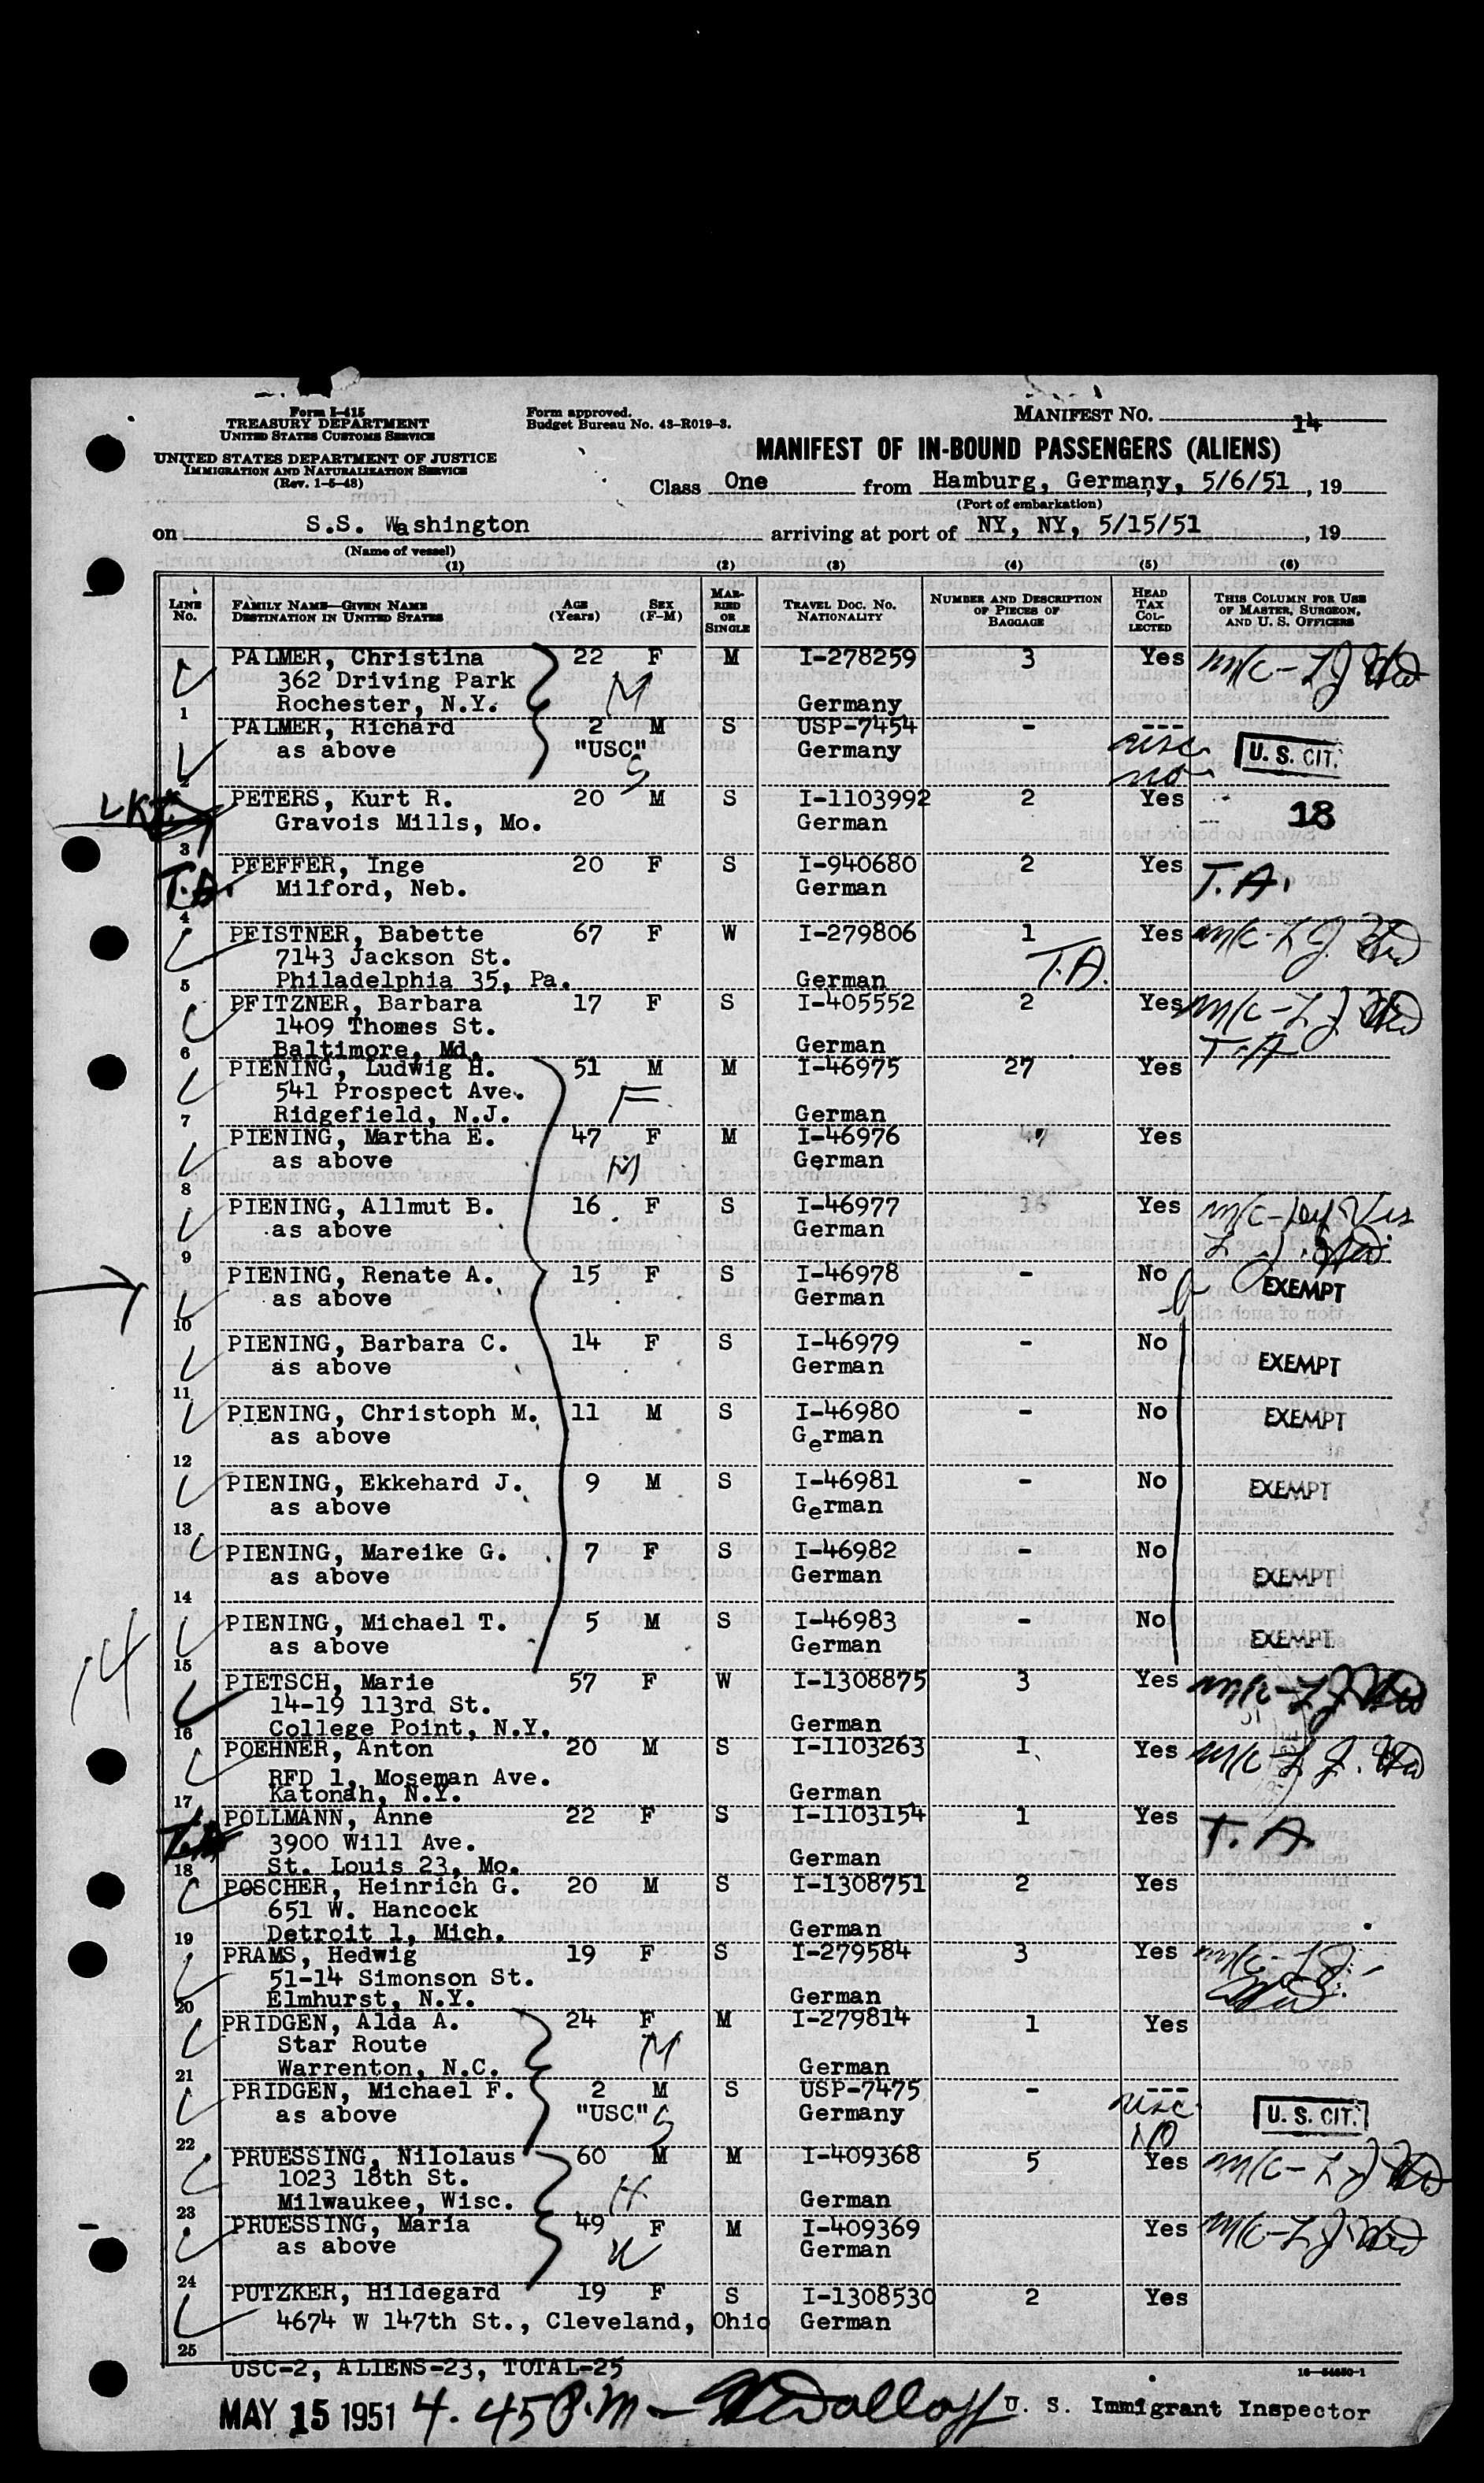 Form I-415
TREASURY DEPARTMENT
UNITED STATES CUSTOMS SERVICE
UNITED STATES DEPARTMENT OF JUSTICE
IMMIGRATION AND NATURALIZATION SERVICE
(Rev. 1-5-48)
Form approved.
Budget Bureau No. 43-R019-3.
MANIFEST NO. 14
MANIFEST OF IN-BOUND PASSENGERS (ALIENS)
Class One from Hamburg, Germany, 5/6/51, 19
(Port of embarkation)
on S.S. Washington arriving at port of NY, NY, 5/15/51, 19
(Name of vessel)
(1) (2) (3) (4) (5) (6)
LINE No. FAMILY NAME—GIVEN NAME DESTINATION IN UNITED STATES AGE (Years) SEX (F-M) MARRIED OR SINGLE TRAVEL DOC. NO. NATIONALITY NUMBER AND DESCRIPTION OF PIECES OF BAGGAGE HEAD TAX COLLECTED THIS COLUMN FOR USE OF MASTER, SURGEON, AND U. S. OFFICERS
PALMER, Christina 22 F M I-278259 3 Yes m/c-
362 Driving Park M
1 Rochester, N.Y. Germany
PALMER, Richard 2 M S USP-7454 - ---
as above "USC" Germany usc U. S. CIT.
2 S no
PETERS, Kurt R. 20 M S I-1103992 2 Yes 18
Gravois Mills, Mo. German
3
PFEFFER, Inge 20 F S I-940680 2 Yes T.A.
T.A. Milford, Neb. German
4
PFISTNER, Babette 67 F W I-279806 1 Yes m/c-
7143 Jackson St. T.A.
5 Philadelphia 35, Pa. German
PFITZNER, Barbara 17 F S I-405552 2 Yes m/c-
1409 Thomes St.
6 Baltimore, Md. German T.A
PIENING, Ludwig H. 51 M M I-46975 27 Yes
541 Prospect Ave. F
7 Ridgefield, N.J. German
PIENING, Martha E. 47 F M I-46976 Yes
as above M German
8
PIENING, Allmut B. 16 F S I-46977 Yes m/c-
as above German
9
PIENING, Renate A. 15 F S I-46978 - No EXEMPT
as above German
10
PIENING, Barbara C. 14 F S I-46979 - No EXEMPT
as above German
11
PIENING, Christoph M. 11 M S I-46980 - No EXEMPT
as above German
12
PIENING, Ekkehard J. 9 M S I-46981 - No EXEMPT
as above German
13
PIENING, Mareike G. 7 F S I-46982 - No EXEMPT
as above German
14
14
PIENING, Michael T. 5 M S I-46983 - No EXEMPT
as above German
15
PIETSCH, Marie 57 F W I-1308875 3 Yes m/c-
14-19 113rd St.
16 College Point, N.Y. German
POEHNER, Anton 20 M S I-1103263 1 Yes m/c
RFD 1, Moseman Ave.
17 Katonah, N.Y. German
POLLMANN, Anne 22 F S I-1103154 1 Yes T. A.
3900 Will Ave.
18 St. Louis 23, Mo. German
POSCHER, Heinrich G. 20 M S I-1308751 2 Yes
651 W. Hancock
19 Detroit 1, Mich. German
PRAMS, Hedwig 19 F S I-279584 3 Yes m/c-
51-14 Simonson St.
20 Elmhurst, N.Y. German
PRIDGEN, Alda A. 24 F M I-279814 1 Yes
Star Route M
21 Warrenton, N.C. German
PRIDGEN, Michael F. 2 M S USP-7475 - ---
as above "USC" S Germany usc U. S. CIT.
22 NO
PRUESSING, Nilolaus 60 M M I-409368 5 Yes m/c-
1023 18th St. H
23 Milwaukee, Wisc. German
PRUESSING, Maria 49 F M I-409369 Yes m/c-
as above W German
24
PUTZKER, Hildegard 19 F S I-1308530 2 Yes
4674 W 147th St., Cleveland, Ohio German
25
USC-2, ALIENS-23, TOTAL-25
16—54650-1
MAY 15 1951 4.45 P.m - U. S. Immigrant Inspector